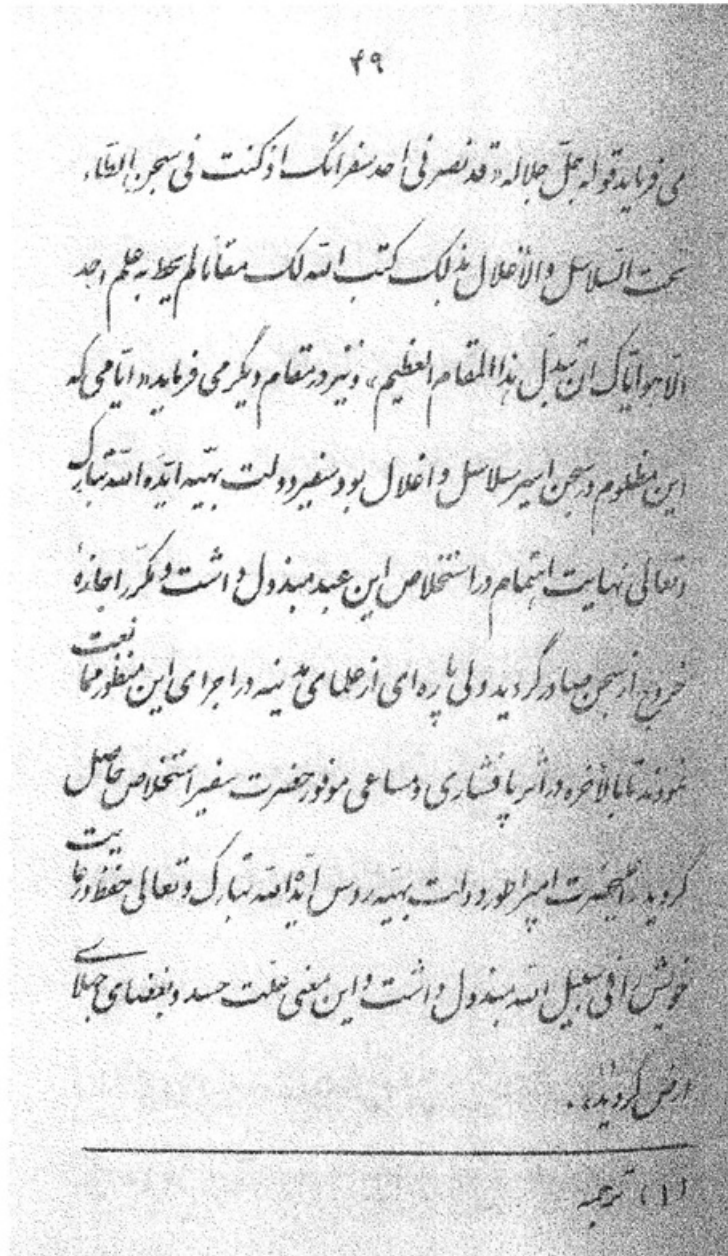 ۴۹
می فرماید قوله جلّ جلاله «قد نصرنی احد سفرائک اذ کنت فی سجن الطّاء
تحت السّلاسل والأغلال بذلک کتب الله لک مقاماً لم یحط به علم احد
الّا هو ایّاک ان تبدّل هذا المقام العظیم»، و نیز در مقام دیگر می فرماید «ایّامی که
این مظلوم در سجن اسیر سلاسل و اغلال بود سفیر دولت بهیّه ایّده الله تبارک
و تعالی نهایت اهتمام در استخلاص این عبد مبذول داشت و مکرّر اجازهٔ
خروج از سجن صادر گردید ولی پاره ای از علمای مدینه در اجرای این منظور ممانعت
نمودند تا بالأخره در اثر پا فشاری و مساعی موفور حضرت سفیر استخلاص حاصل
گردید. اعلیحضرت امپراطور دولت بهیّه روس ایّده الله تبارک و تعالی حفظ و رعایت
خویش را فی سبیل الله مبذول داشت و این معنی علّت حسد و بغضای جهلای
ارض گردید»(۱).
(۱) ترجمه